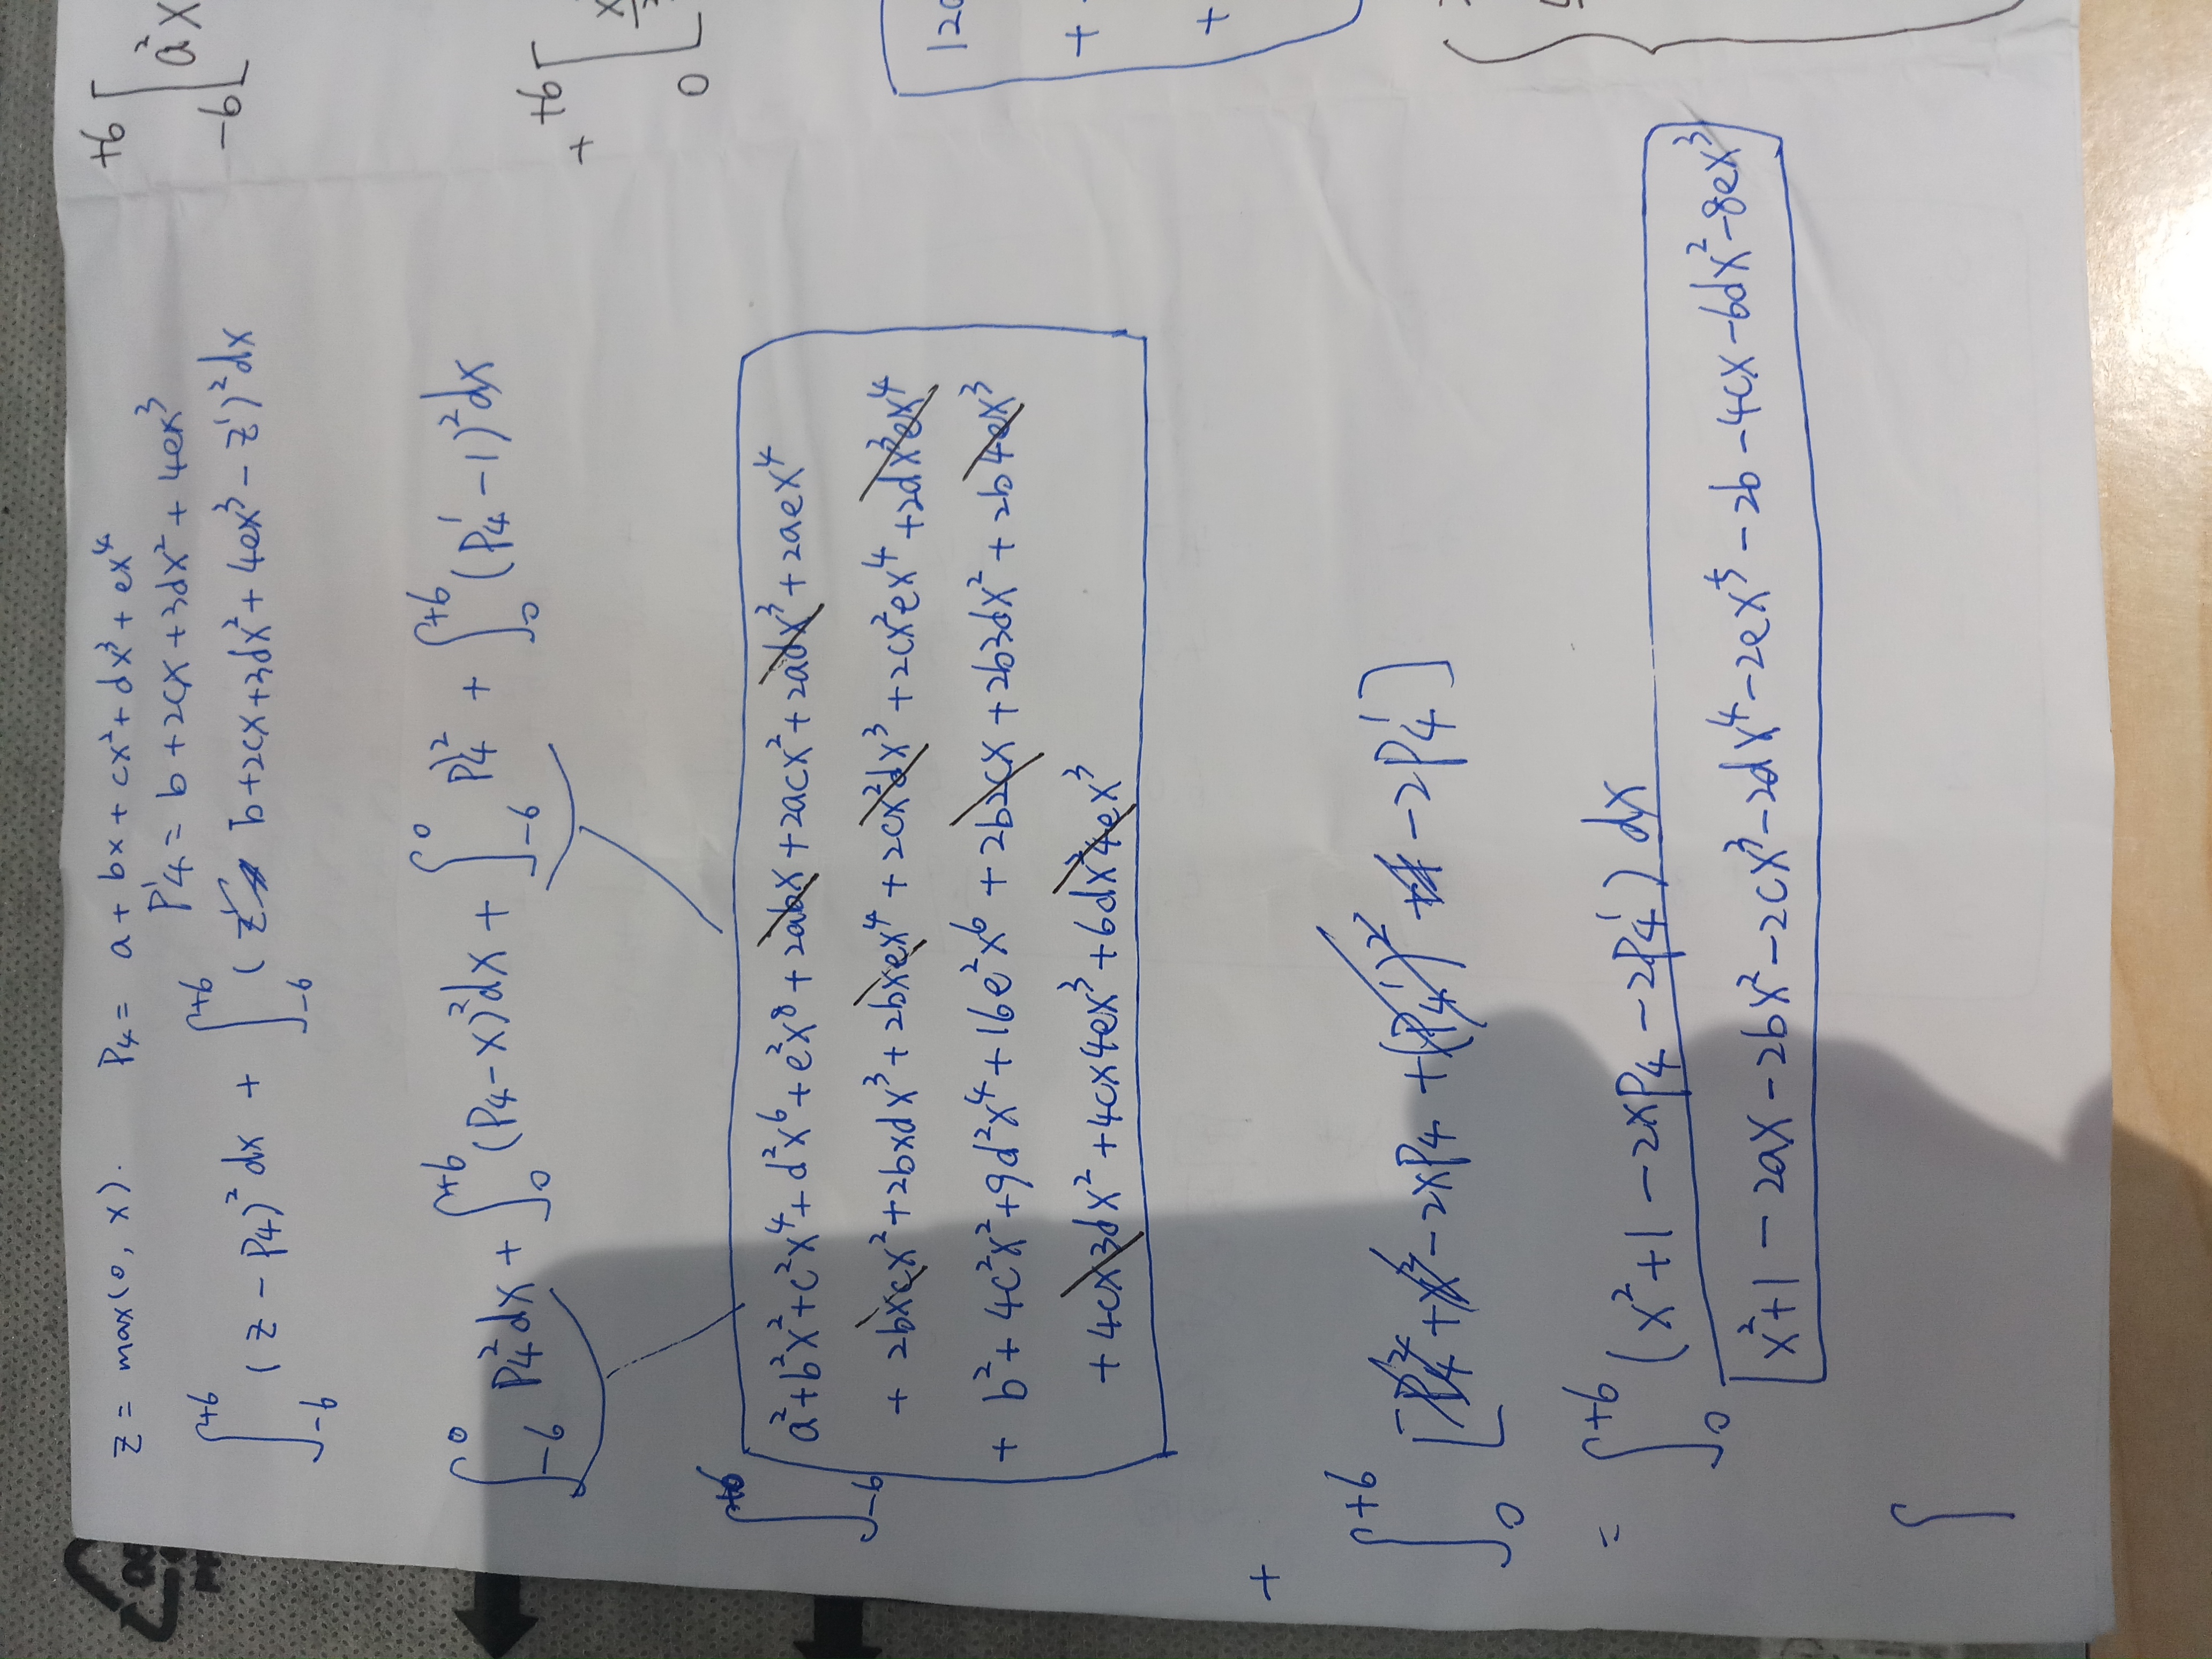 z = max(0, x). P₄ = a + bx + cx² + dx³ + ex⁴
P₄' = b + 2cx + 3dx² + 4ex³
∫₋₆⁺⁶ (z - P₄)² dx + ∫₋₆⁺⁶ ( b+2cx+3dx²+4ex³ - z')² dx
∫₋₆⁰ P₄² dx + ∫₀⁺⁶ (P₄-x)² dx + ∫₋₆⁰ P₄'² + ∫₀⁺⁶ (P₄'-1)² dx
∫₋₆⁺⁶ a²+b²x²+c²x⁴+d²x⁶+e²x⁸+2abx+2acx²+2adx³+2aex⁴
+ 2bxcx²+2bxdx³+2bxex⁴+2cx²dx³+2cx²ex⁴+2dx³ex⁴
+ b²+4c²x²+9d²x⁴+16e²x⁶+2b2cx+2b3dx²+2b4ex³
+ 4cx3dx²+4cx4ex³+6dx²4ex³
+
∫₀⁺⁶ [P₄²+x²-2xP₄+(P₄')²+1-2P₄']
= ∫₀⁺⁶ (x²+1-2xP₄-2P₄') dx
∫ x²+1-2ax-2bx²-2cx³-2dx⁴-2ex⁵-2b-4cx-6dx²-8ex³
+6
-6 [ a²x
+ +6
0 [
120
+
+